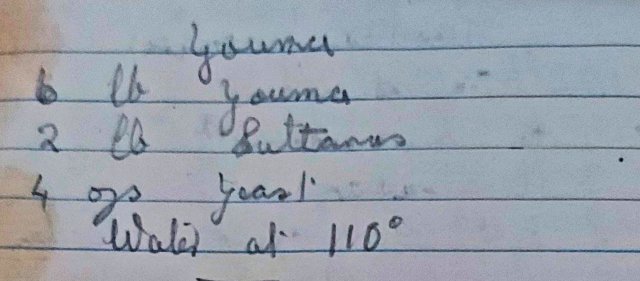 Youma
6 lb Youma
2 lb Sultanas
4 ozs yeast
Water at 110°